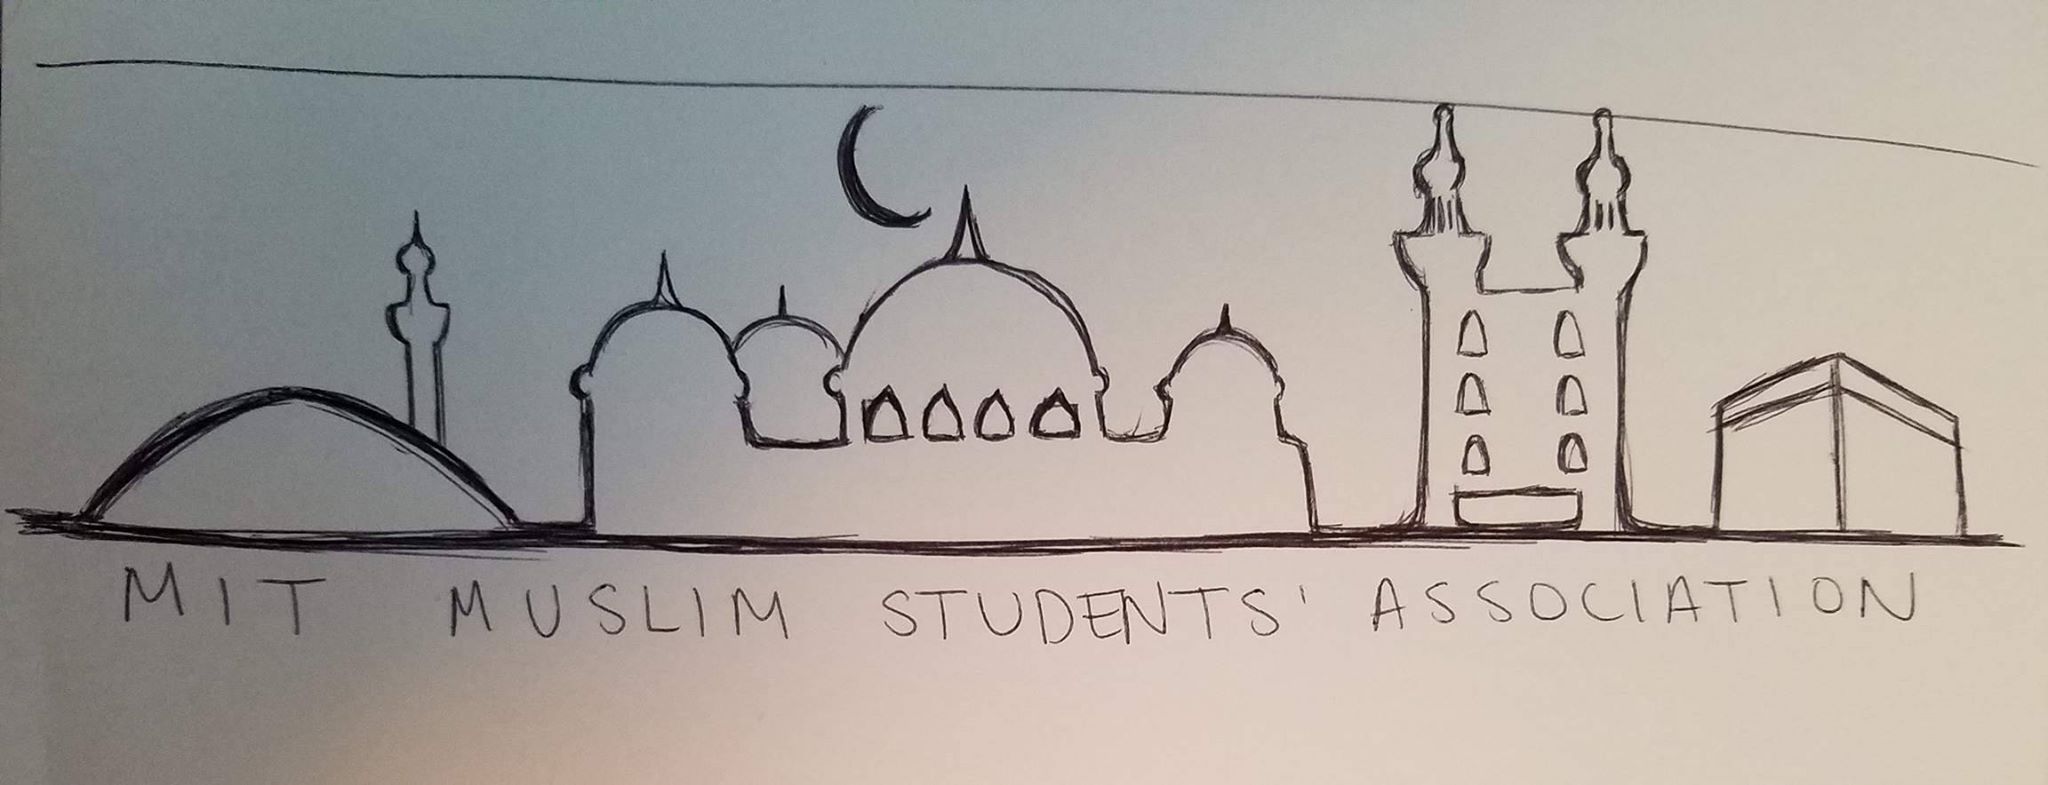 MIT MUSLIM STUDENTS' ASSOCIATION